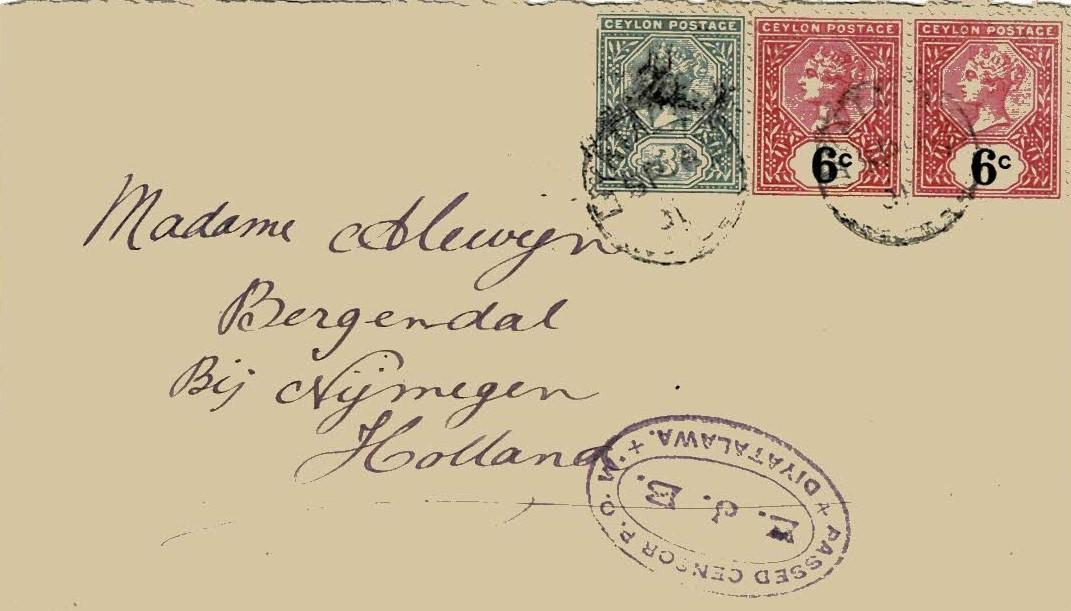 CEYLON POSTAGE CEYLON POSTAGE CEYLON POSTAGE
3 6c 6c
31
Madame Alewijn
Bergendal
Bij Nijmegen
Holland
PASSED CENSOR P.O.W. + DIYATALAWA. +
E. J. B.